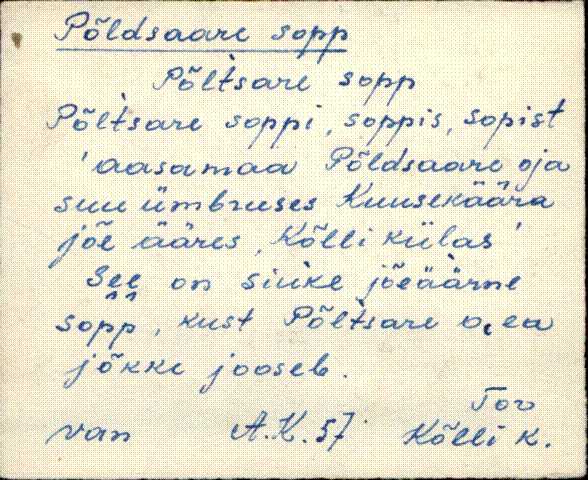 Põldsaare sopp
Põltsare sopp
Põltsare soppi, soppis, sopist
'aasamaa Põldsaare oja
suu ümbruses Kuusekäära
jõe ääres, Kõlli külas'
See on siuke jõeäärne
sopp, kust Põltsare oea
jõkke jooseb.
Tor
van A.K. 57. Kõlli k.